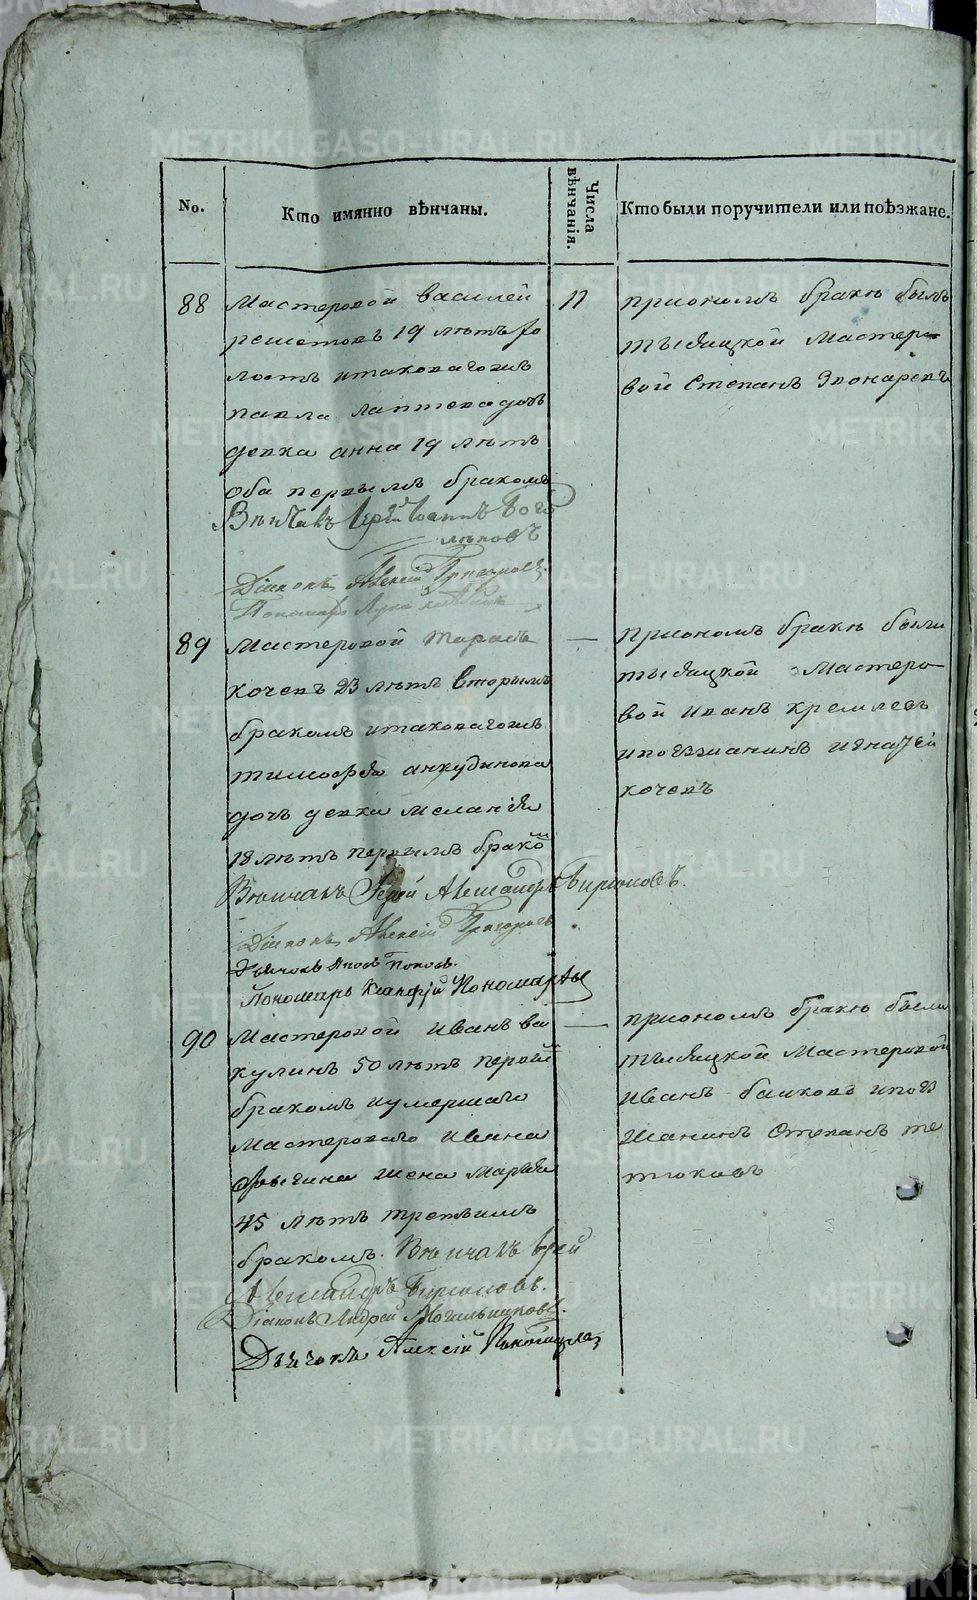 No.
Кто имянно вѣнчаны.
Числа вѣнчанія.
Кто были поручители или поѣзжане.
88
Мастеровой Василей
решетовъ 19 лѣтъ хо
лостъ итаковагожъ
павла лаптева дочь
девка анна 19 лѣтъ
оба первымъ бракомъ
Вѣнчавъ Іерей Іоаннъ
Діаконъ Алексій Григорьев
Пономарь Лука
11
приономъ бракѣ былъ
тысяцкой мастеро
вой Степанъ Звонаревъ
89
Мастеровой Тарасъ
кочевъ 23 лѣтъ вторымъ
бракомъ итаковагожъ
тимофѣя анкудинова
дочь девка меланія
18 лѣтъ первымъ бракомъ
Вѣнчавъ Іерей Александръ Бирюковъ.
Діаконъ Алексій Григорьев
Дьячокъ Яковъ Поповъ.
Пономарь Пономаревъ
—
приономъ бракѣ были
тысяцкой Мастеро
вой Иванъ кремлевъ
ипоезжанинъ игнатей
кочевъ
90
Мастеровой иванъ ва
кулинъ 50 лѣтъ первымъ
бракомъ иумершаго
мастероваго ивана
жена Марѳа
45 лѣтъ третьимъ
бракомъ. Вѣнчавъ Іерей
Александръ Бирюковъ.
Діаконъ Андрей
Дьячокъ Алексій
—
приономъ бракѣ были
тысяцкой Мастеровой
иванъ ипоез
жанинъ Степанъ те
тюковъ
METRIKI.GASO-URAL.RU